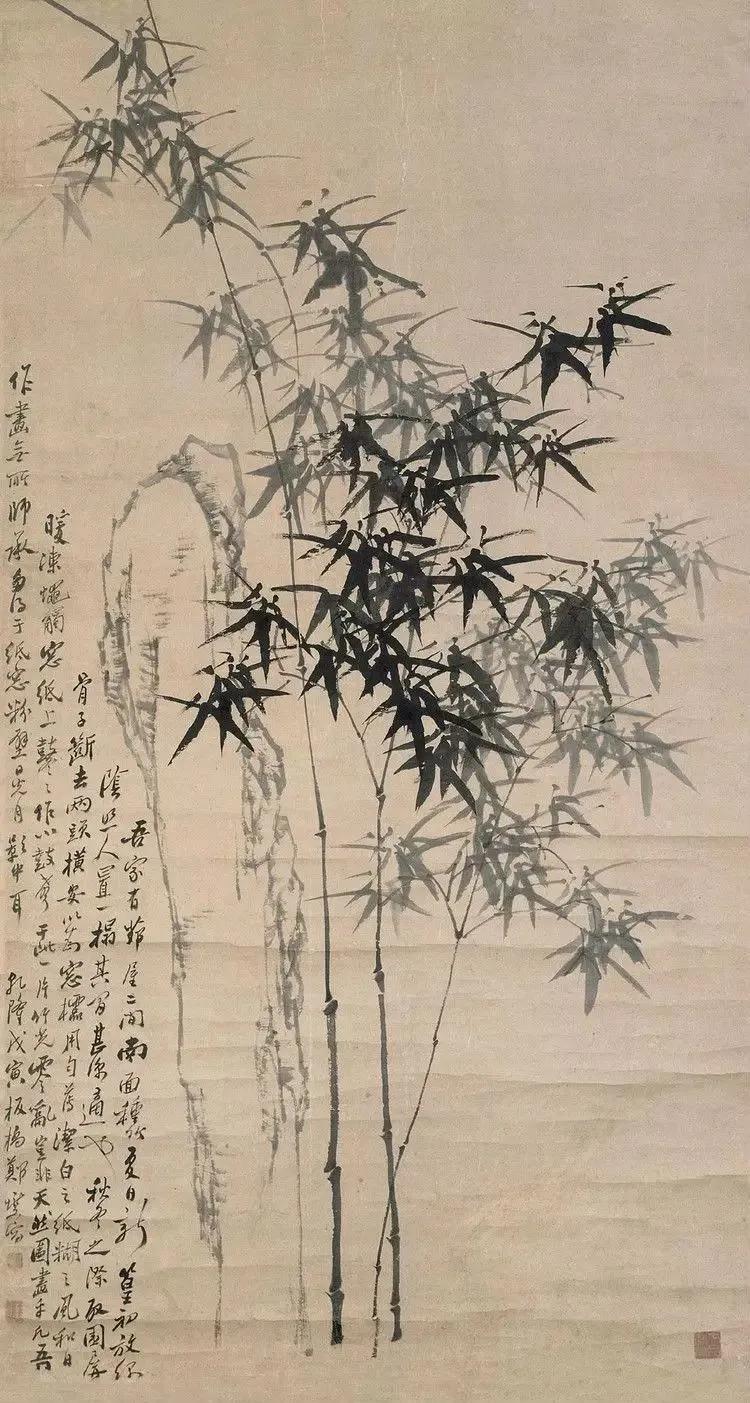 吾家有茆屋二間南面種竹夏日新篁初放綠
陰照人置一榻其間甚涼適也秋冬之際取圍屏
骨子斷去兩頭橫安以為窓櫺用勻薄潔白之紙糊之風和日
暖凍蠅觸窓紙上鼕〻作小鼓聲于一片竹光零亂豈非天然圖畫乎凡吾
作畫無所師承多得于紙窓粉壁日光月影中耳 乾隆戊寅板橋鄭燮寫